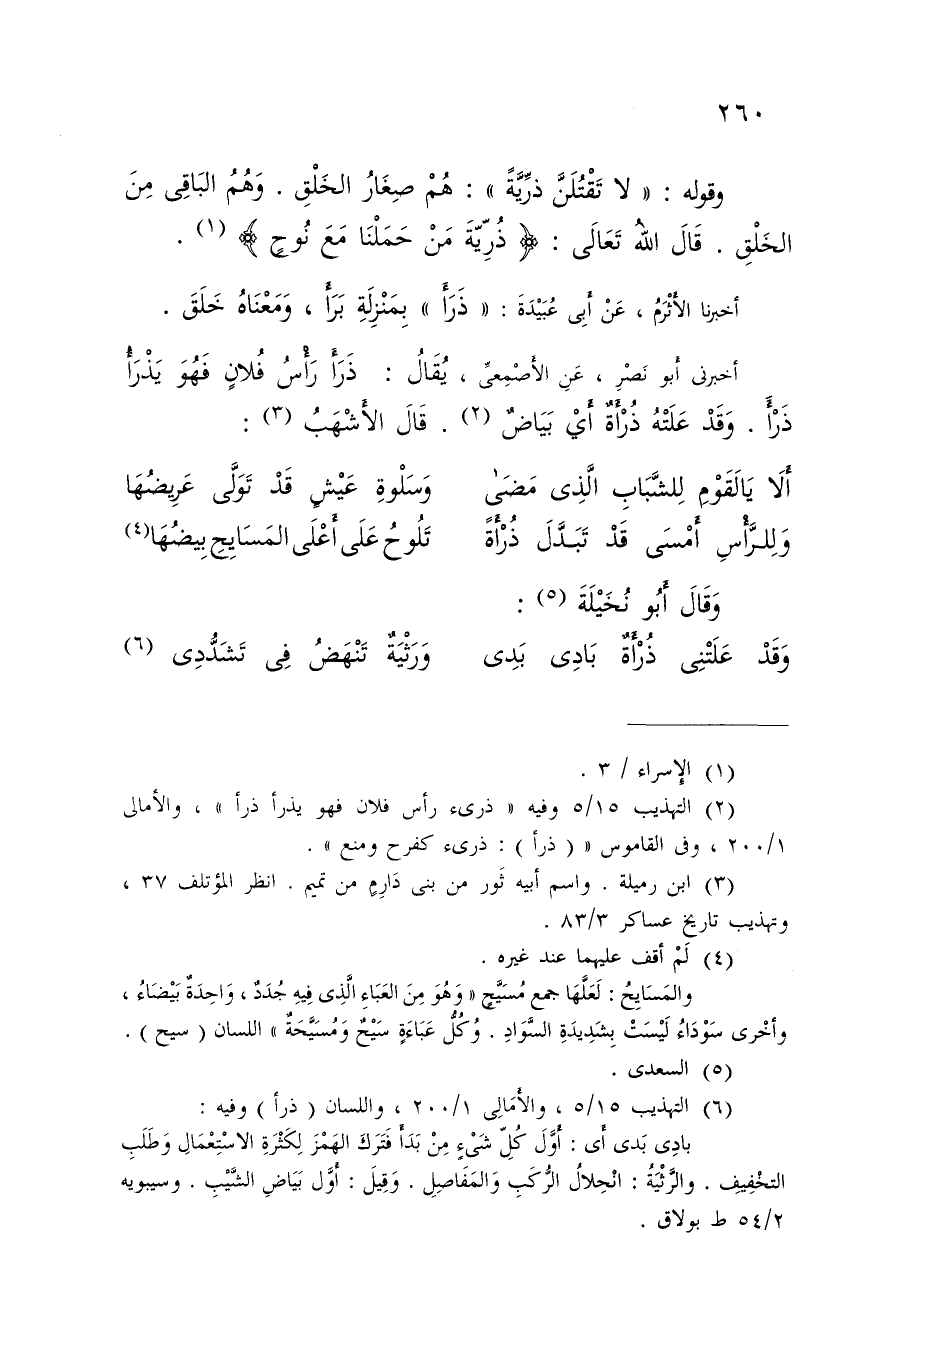 ٢٦٠
وقوله : « لا تَقْتُلَنَّ ذرِّيَّةً » : هُمْ صِغَارُ الخَلْقِ . وَهُمُ البَاقِى مِنَ
الخَلْقِ . قَالَ اللهُ تَعَالَى : ﴿ ذُرِّيَّةَ مَنْ حَمَلْنَا مَعَ نُوحٍ ﴾ (١) .
أخبرنا الأَثْرَمُ ، عَنْ أَبِى عُبَيْدَةَ : « ذَرَأَ » بِمَنْزِلَةِ بَرَأَ ، وَمَعْنَاهُ خَلَقَ .
أخبرنى أَبو نَصْرٍ ، عَنِ الأَصْمِعىِّ ، يُقَالُ : ذَرَأَ رَأْسُ فُلانٍ فَهُوَ يَذْرَأُ
ذَرْأً . وَقَدْ عَلَتْهُ ذُرْأَةٌ أَيْ بَيَاضٌ (٢) . قَالَ الأَشْهَبُ (٣) :
أَلَا يَالَقَوْمِ لِلشَّبَابِ الَّذِى مَضَىٰ وَسَلْوةِ عَيْشٍ قَدْ تَوَلَّى عَرِيضُهَا
وَلِلرَّأْسِ أَمْسَى قَدْ تَبَدَّلَ ذُرْأَةً تَلُوحُ عَلَى أَعْلَى المَسَايِحِ بِيضُهَا(٤)
وَقَالَ أَبُو نُخَيْلَةَ (٥) :
وَقَدْ عَلَتْنِى ذُرْأَةٌ بَادِى بَدِى وَرَثْيَةٌ تَنْهَضُ فِى تَشَدُّدِى (٦)
(١) الإسراء / ٣ .
(٢) التهذيب ٥/١٥ وفيه « ذرىء رأس فلان فهو يذرأ ذرأ » ، والأمالى
٢٠٠/١ ، وفى القاموس « ( ذرأ ) : ذرىء كفرح ومنع » .
(٣) ابن رميلة . واسم أبيه ثَور من بنى دَارِمٍ من تميم . انظر المؤتلف ٣٧ ،
وتهذيب تاريخ عساكر ٨٣/٣ .
(٤) لَمْ أقف عليهما عند غيره .
والمَسَايِحُ : لَعَلَّهَا جمع مُسَيَّحٍ « وَهُوَ مِنَ العَبَاءِ الَّذِى فِيهِ جُدَدٌ ، وَاحِدَةٌ بَيْضَاءُ ،
وأخْرى سَوْدَاءُ لَيْسَتْ بِشَدِيدَةِ السَّوَادِ . وُكُلُّ عَبَاءَةٍ سَيْحٌ وَمُسَيَّحَةٌ » اللسان ( سيح ) .
(٥) السعدى .
(٦) التهذيب ٥/١٥ ، والأَمَالِى ٢٠٠/١ ، واللسان ( ذرأ ) وفيه :
بادِى بَدى أى : أَوَّلَ كُلِّ شَىْءٍ مِنْ بَدَأَ فَتَرَكَ الهَمْزَ لِكَثْرَةِ الاسْتِعْمَالِ وَطَلَبِ
التخْفِيفِ . والرَّثْيَةُ : انْحِلالُ الرُّكَبِ وَالمَفَاصِلِ . وَقِيلَ : أَوَّل بَيَاضِ الشَّيْبِ . وسيبويه
٥٤/٢ ط بولاق .